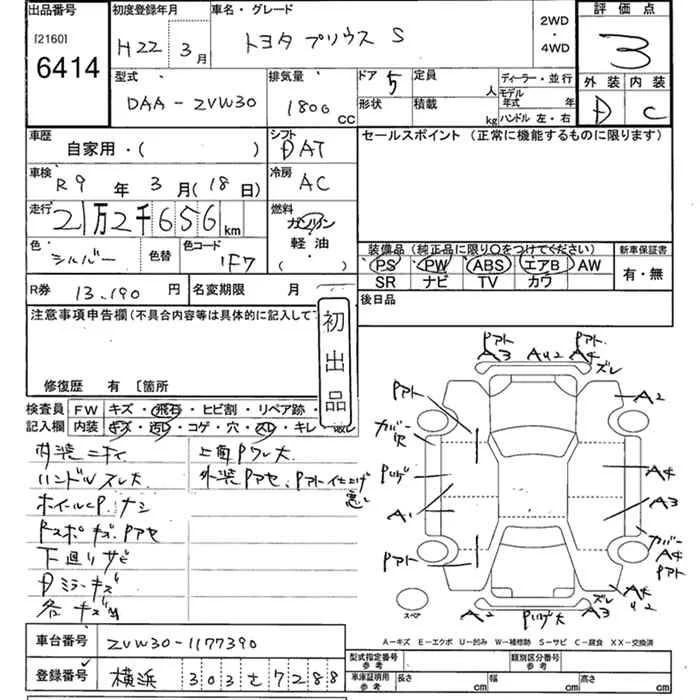 出品番号
[2160]
6414
初度登録年月
H22年 3月
車名・グレード
トヨタ プリウス S
2WD
・
4WD
評価点
3
外装 内装
D C
型式
DAA-ZVW30
排気量
1800 CC
ドア 5
定員 人
形状
積載 kg
ディーラー・並行
モデル年式 年
ハンドル 左・右
車歴
自家用・( )
シフト
DAT
セールスポイント (正常に機能するものに限ります)
車検
R9年 3月(18日)
冷房
AC
走行
21万2千656 km
燃料
ガソリン
軽油
( )
色
シルバー
色替
色コード
1F7
装備品(純正品に限り○をつけてください)
PS PW ABS エアB AW
SR ナビ TV カワ
新車保証書
有・無
R券 13,190 円
名変期限 月
後日品
注意事項申告欄(不具合内容等は具体的に記入して
初出品
修復歴 有 〔箇所
検査員記入欄
FW キズ・飛石・ヒビ割・リペア跡・
内装 キズ・汚レ・コゲ・穴・スレ・キレ・
内装ニオイ
ハンドルスレ大
ホイールCP.ナシ
Rスポキズ.Pアセ
下廻りサビ
Dミラーキズ
各キズ凹
上面Pワレ大
外装Pアセ、Pアト仕上げ悪し
Pアト
A3
AU2
Pアト
A4
ズレ
A2
Pアト
カバー穴
Pハゲ
A1
Pアト
A4
A3
カバー
A4
Pアト
スペア
Pハゲ大
ズレ
A3
A4
U2
A-キズ E-エクボ U-凹み W-補修跡 S-サビ C-腐食 XX-交換済
車台番号 ZVW30-1177390
登録番号 横浜 303 せ 7288
型式指定番号 参考
類別区分番号 参考
車庫証明用 参考
長さ cm
幅 cm
高さ cm